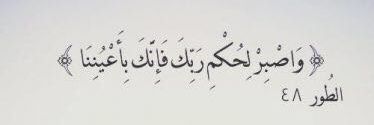 ﴿ وَاصْبِرْ لِحُكْمِ رَبِّكَ فَإِنَّكَ بِأَعْيُنِنَا ﴾
الطُور ٤٨